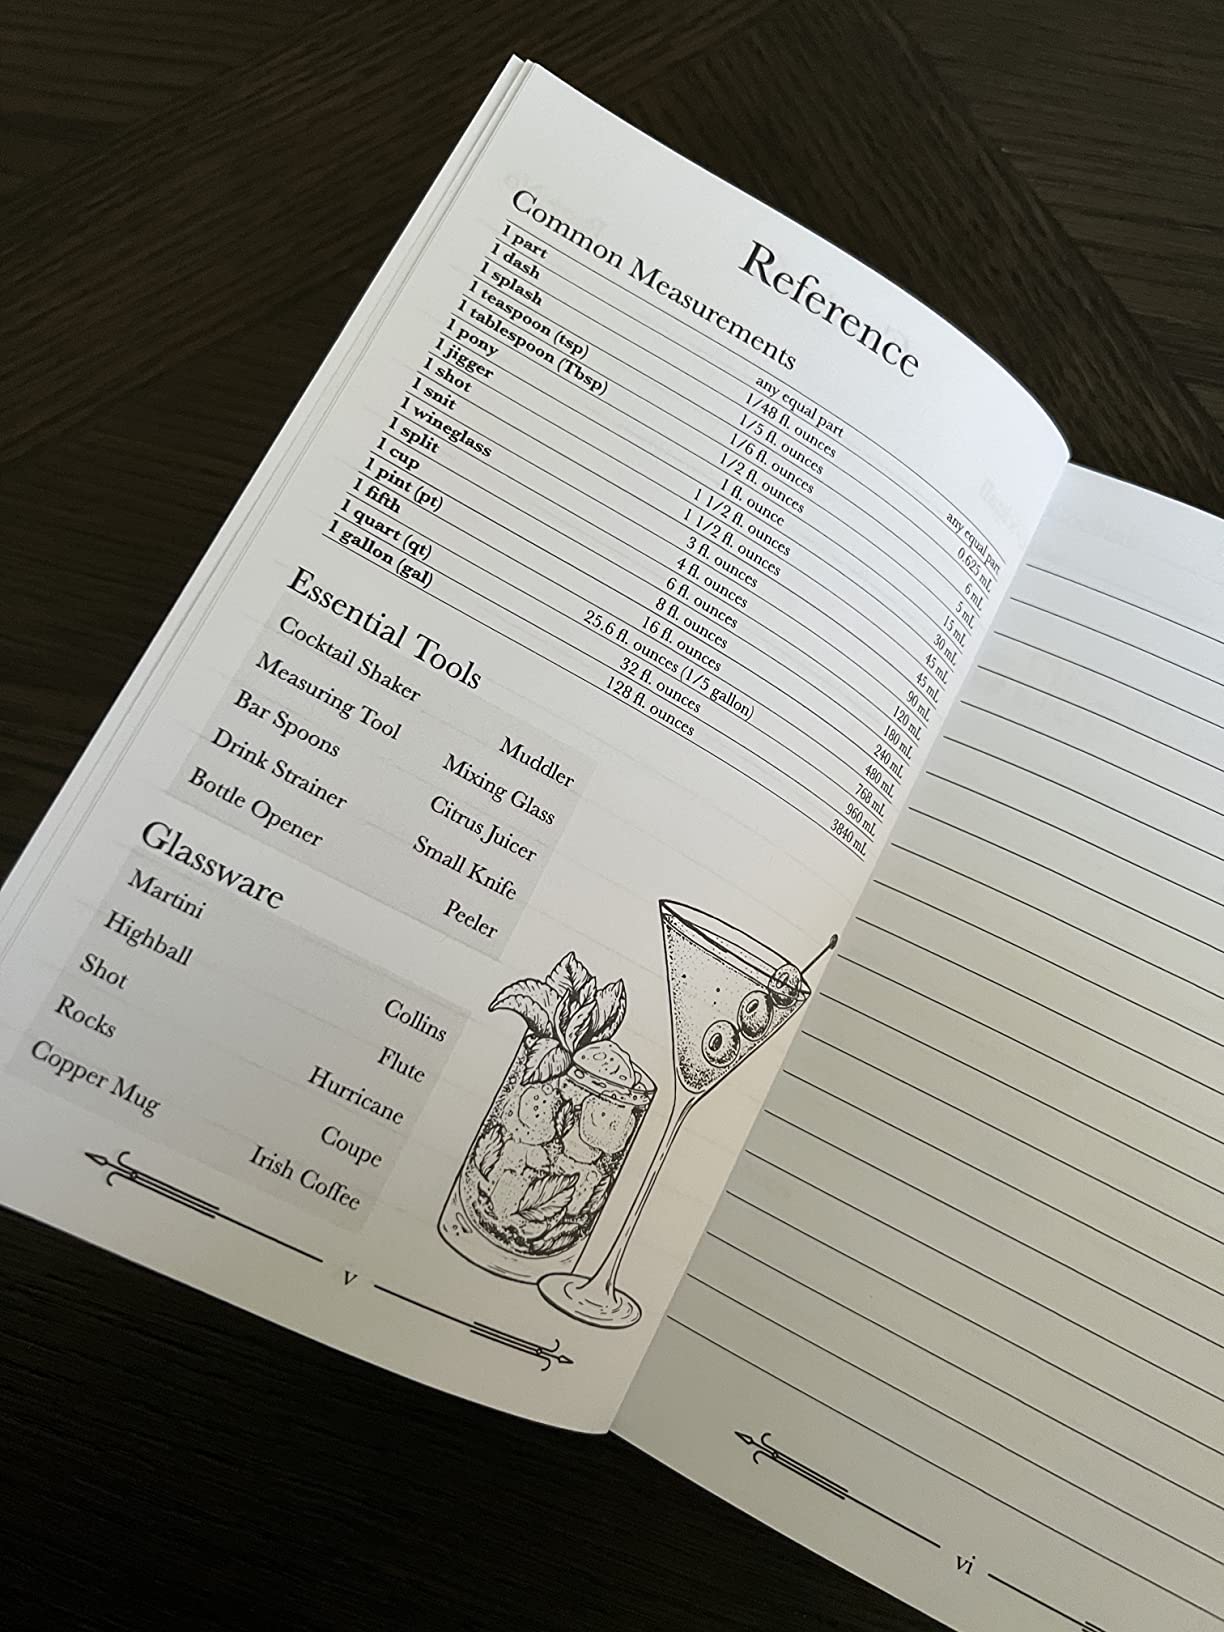 Reference
Common Measurements
1 part any equal part any equal part
1 dash 1/48 fl. ounces 0.625 mL
1 splash 1/5 fl. ounces 6 mL
1 teaspoon (tsp) 1/6 fl. ounces 5 mL
1 tablespoon (Tbsp) 1/2 fl. ounces 15 mL
1 pony 1 fl. ounce 30 mL
1 jigger 1 1/2 fl. ounces 45 mL
1 shot 1 1/2 fl. ounces 45 mL
1 snit 3 fl. ounces 90 mL
1 wineglass 4 fl. ounces 120 mL
1 split 6 fl. ounces 180 mL
1 cup 8 fl. ounces 240 mL
1 pint (pt) 16 fl. ounces 480 mL
1 fifth 25.6 fl. ounces (1/5 gallon) 768 mL
1 quart (qt) 32 fl. ounces 960 mL
1 gallon (gal) 128 fl. ounces 3840 mL
Essential Tools
Cocktail Shaker Muddler
Measuring Tool Mixing Glass
Bar Spoons Citrus Juicer
Drink Strainer Small Knife
Bottle Opener Peeler
Glassware
Martini Collins
Highball Flute
Shot Hurricane
Rocks Coupe
Copper Mug Irish Coffee
v
vi